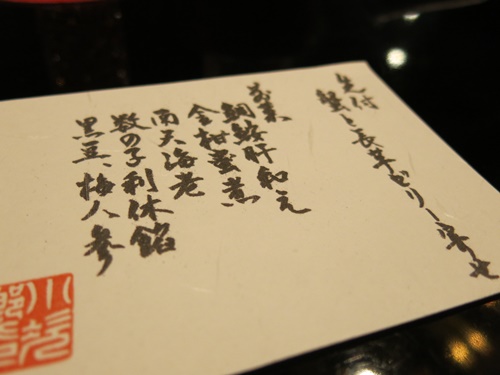 先付
蟹と長芋ゼリー寄せ
前菜
鯛鮟肝和え
金柑蜜煮
南天海老
数の子利休餡
黒豆、梅人参